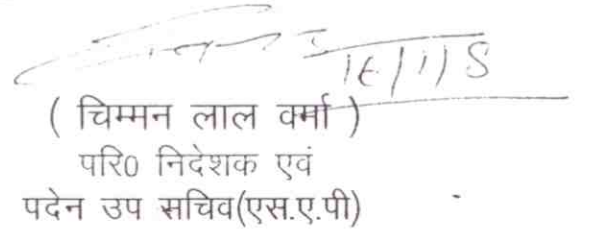 16/1/15
( चिम्मन लाल वर्मा )
परि0 निदेशक एवं
पदेन उप सचिव(एस.ए.पी)